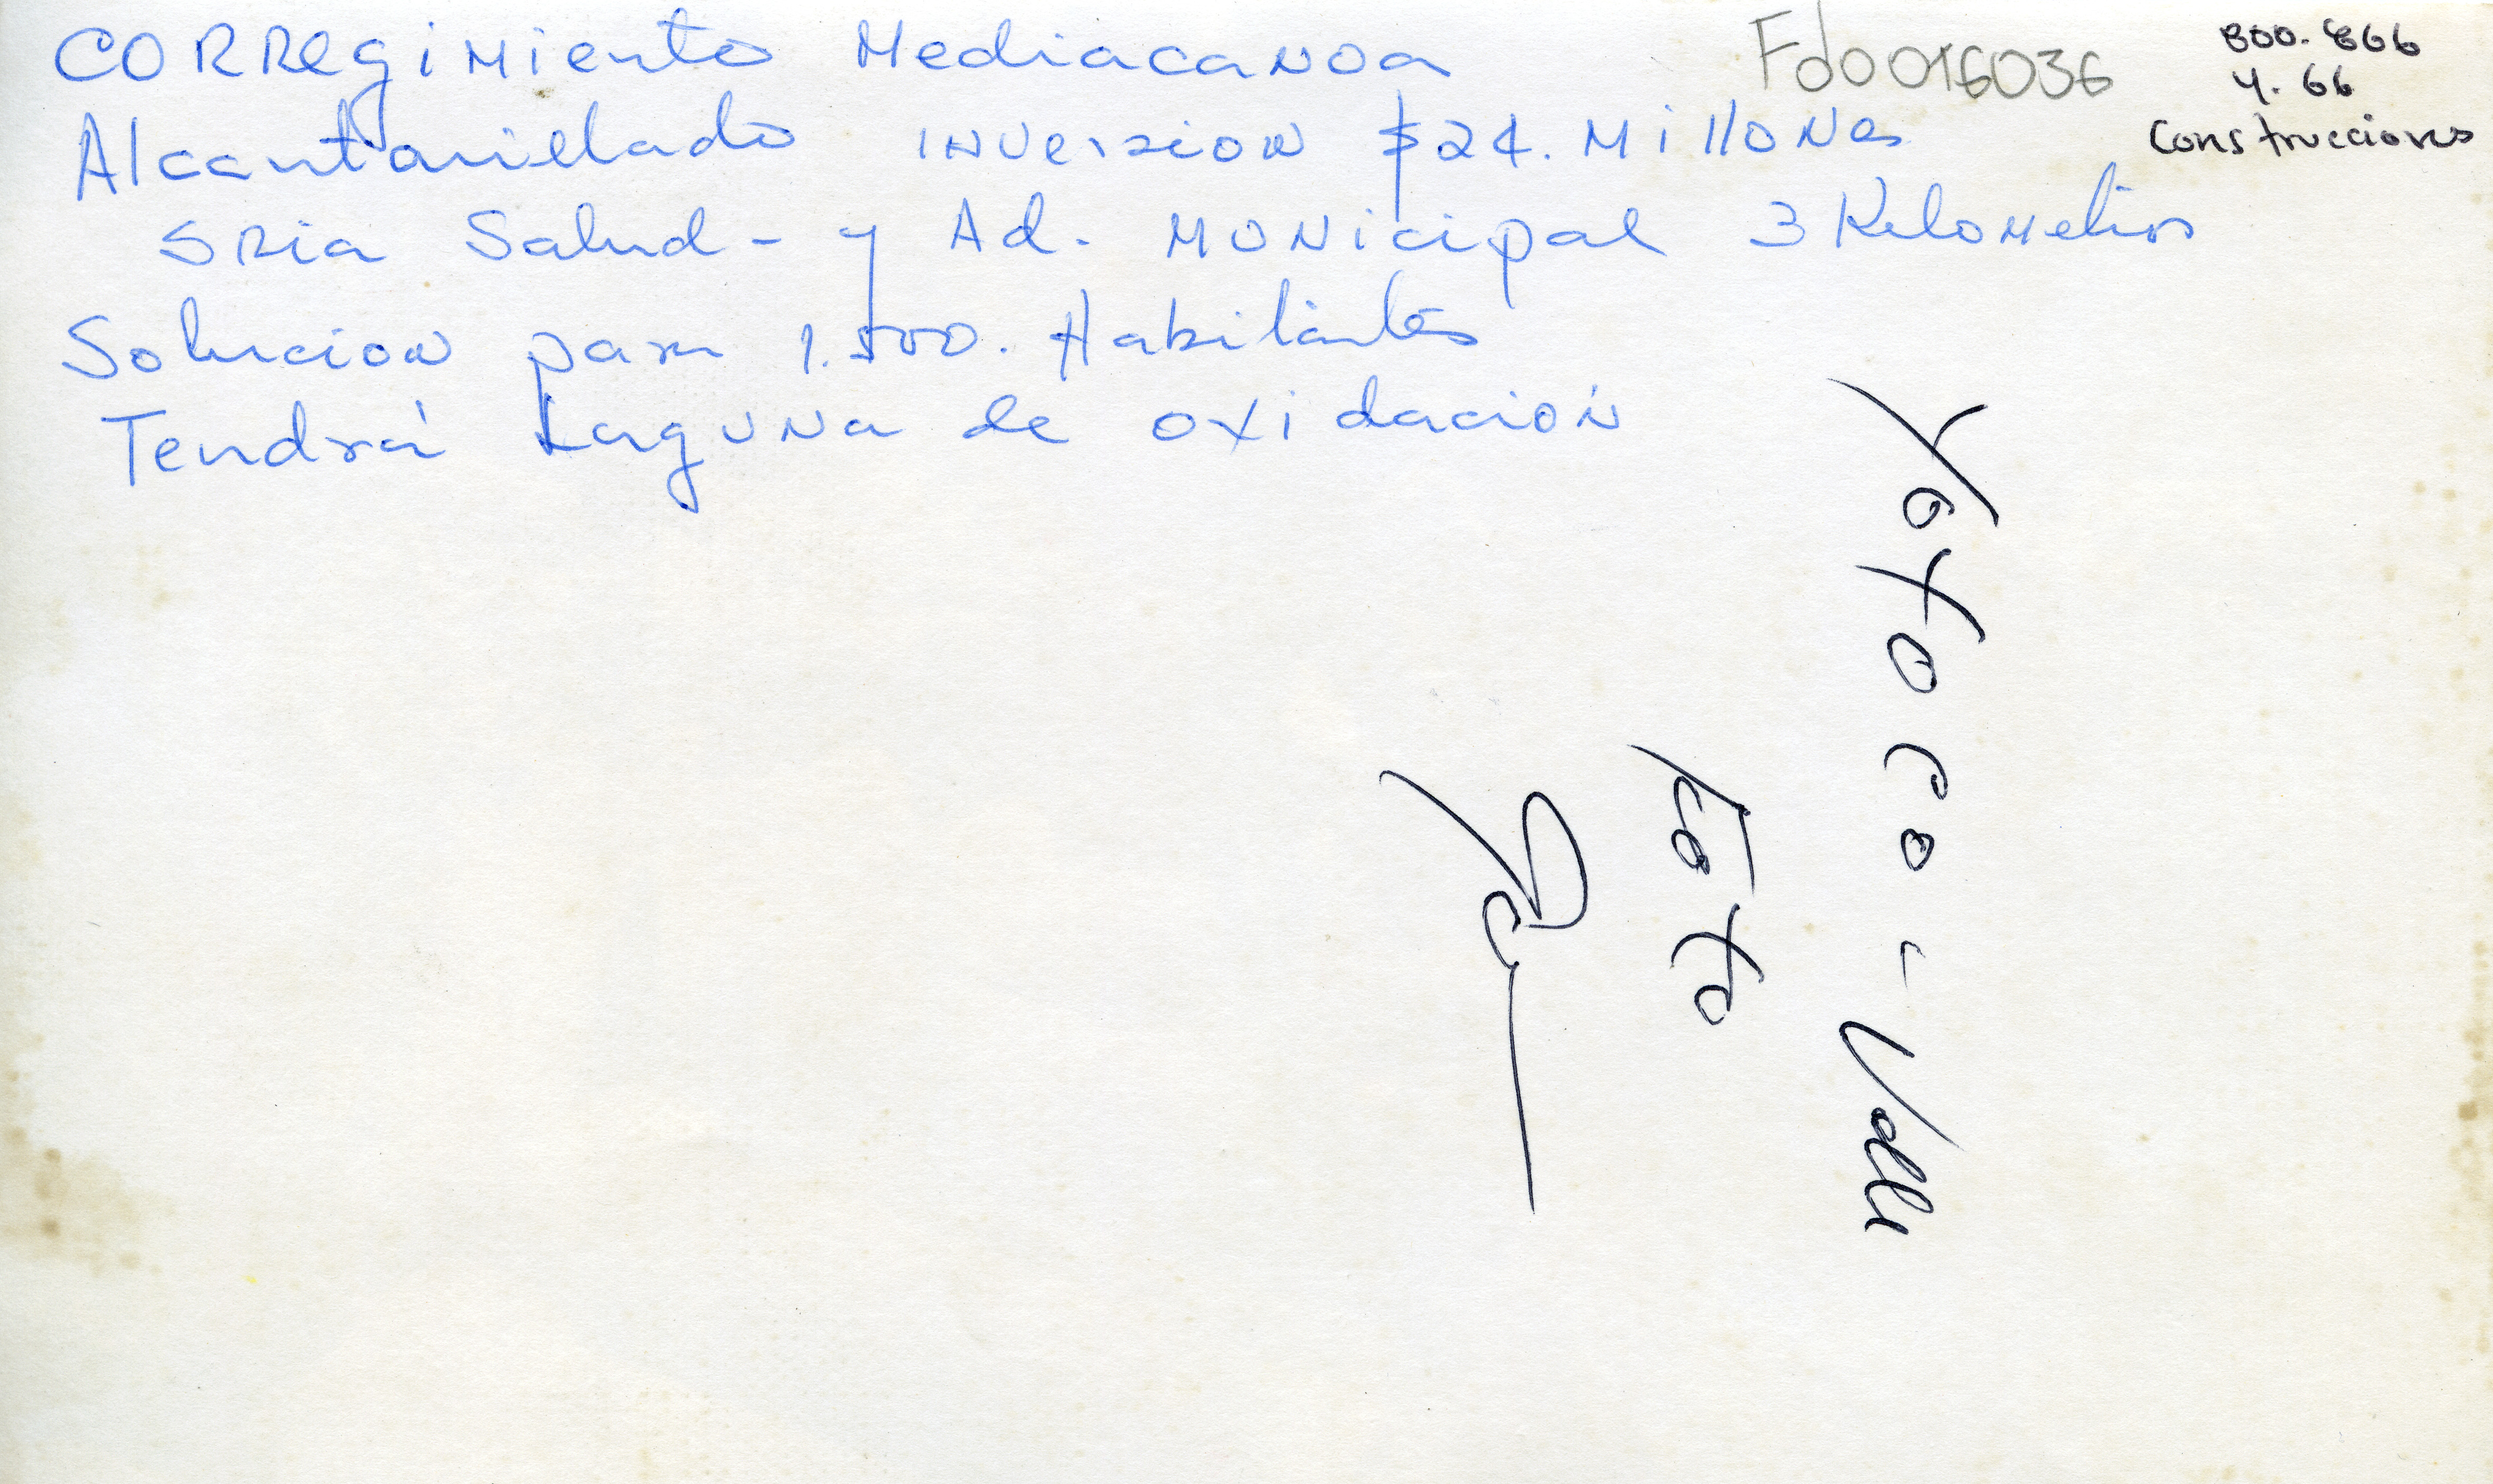 CORRegimiento Mediacanoa
Alcantarillado inversion $24. Millones
SRia Salud - y Ad. Municipal 3 Kilometros
Solucion para 1.500. Habitantes
Tendrá Laguna de oxidación
Fd0016036
800.866
4.66
Construcciones
Yotoco - Valle
Foto